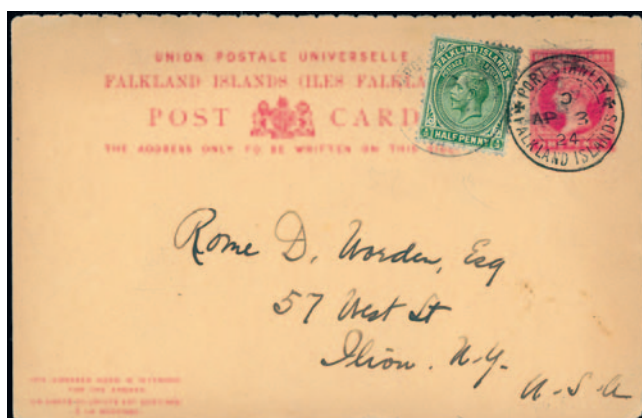 UNION POSTALE UNIVERSELLE
FALKLAND ISLANDS (ILES FALKLA
POST CARD
THE ADDRESS ONLY TO BE WRITTEN ON THIS
FALKLAND ISLANDS
HALF PENNY
PORT STANLEY
AP 3
24
FALKLAND ISLANDS
Rome D. Worden, Esq
57 West St
Ilion. N.Y.
U-S-A
THE ANNEXED CARD IS INTENDED
FOR THE ANSWER